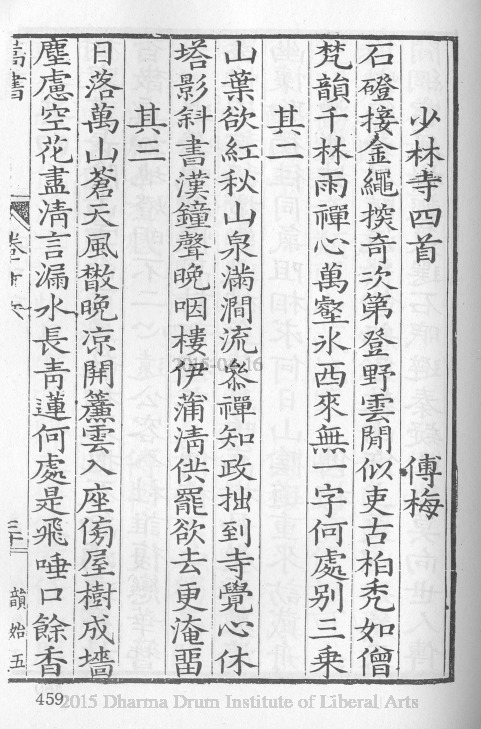 少林寺四首　　　　傅梅
石磴接金繩探奇次第登野雲閒似吏古柏禿如僧
梵韻千林雨禪心萬壑氷西來無一字何處别三乗
其二
山葉欲紅秋山泉滿澗流叅禪知政拙到寺覺心休
塔影斜書漢鐘聲晩咽樓伊蒲淸供罷欲去更淹畱
其三
日落萬山蒼天風散晩凉開簾雲入座傍屋樹成墻
塵慮空花盡淸言漏水長靑蓮何處是飛唾口餘香
嵩書 卷 三十 韻始五
459
2015-06-16
2015 Dharma Drum Institute of Liberal Arts